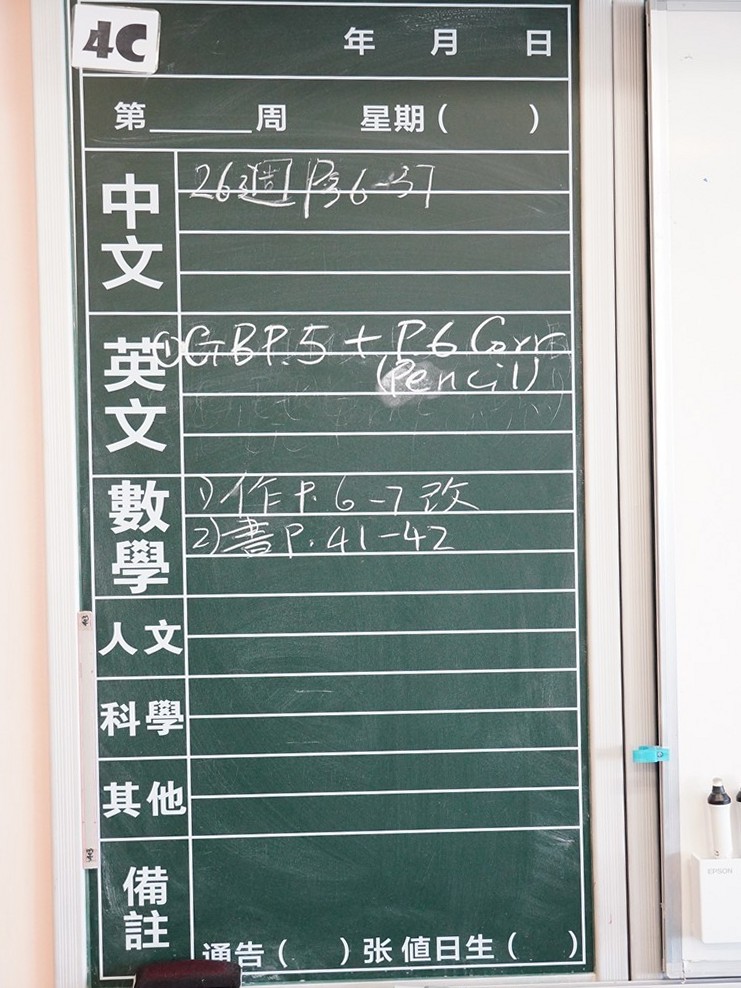 4C
年 月 日
第______周 星期( )
中文
26週 P36-37
英文
①GB P.5 + P6 Corr
(Pencil)
數學
1)作 P.6-7改
2)書 P.41-42
人文
科學
其他
備註
通告( )张 值日生( )
EPSON